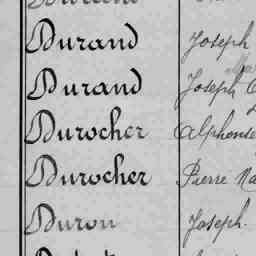 Durand Joseph
Durand Joseph
Durocher Alphonse
Durocher Pierre
Duron Joseph.